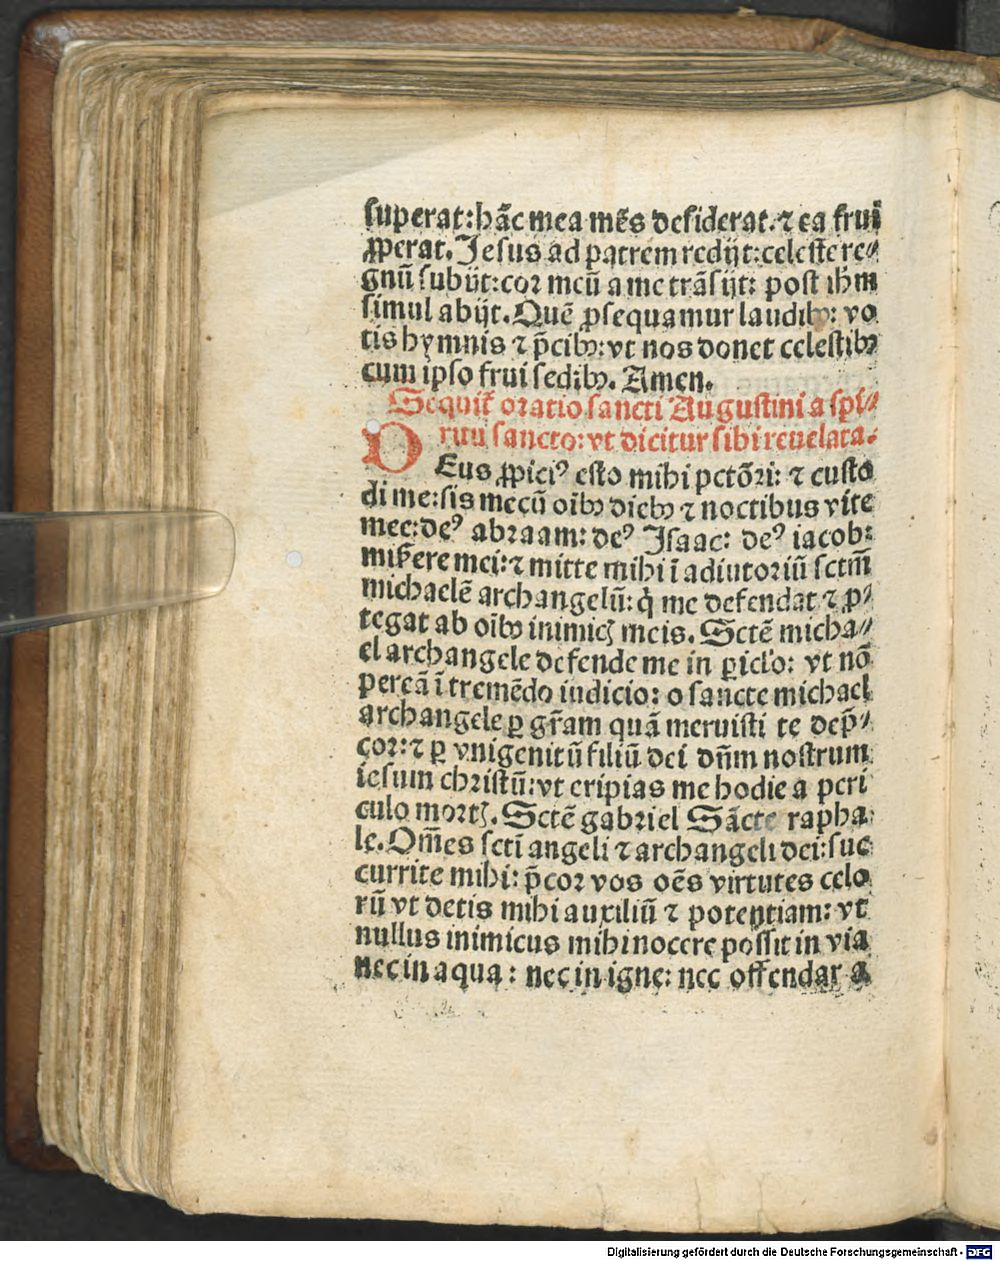 superat:hãc mea mẽs desiderat.⁊ ea frui
ꝓperat. Jesus ad patrem redijt:celeste re⸗
gnũ subijt:cor meũ a me trãsijt: post ihm
simul abijt. Quẽ ꝓsequamur laudibꝰ: vo
tis hymnis ⁊ p̃cibꝰ: vt nos donet celestibꝰ
cum ipso frui sedibꝰ. Amen.
Sequit᷑ oratio sancti Augustini a spi⸗
ritu sancto: vt dicitur sibi reuelata.
DEus ꝓpiciꝰ esto mihi pctõri: ⁊ custo
di me: sis mecũ oĩbꝰ diebꝰ ⁊ noctibus vite
mee: deꝰ abraam: deꝰ Isaac: deꝰ iacob:
mis̃ere mei: ⁊ mitte mihi ĩ adiutoriũ sctm̃
michaelẽ archangelũ: q̇ me defendat ⁊ ꝓ⸗
tegat ab oĩbꝰ inimicꝭ meis. Sctẽ micha⸗
el archangele defende me in ꝑicl'o: vt nõ
pereã ĩ tremẽdo iudicio: o sancte michael
archangele ꝑ gr̃am quã meruisti te dep̃⸗
cor: ⁊ ꝑ vnigenitũ filiũ dei dñm nostrum
iesum christũ: vt eripias me hodie a peri
culo mortꝭ. Sctẽ gabriel Sãcte rapha
le. Om̃es sctĩ angeli ⁊ archangeli dei: suc
currite mihi: p̃cor vos oẽs virtutes celo
rũ vt detis mihi auxiliũ ⁊ potentiam: vt
nullus inimicus mihi nocere possit in via
nec in aqua: nec in igne: nec offendar a
Digitalisierung gefördert durch die Deutsche Forschungsgemeinschaft - DFG